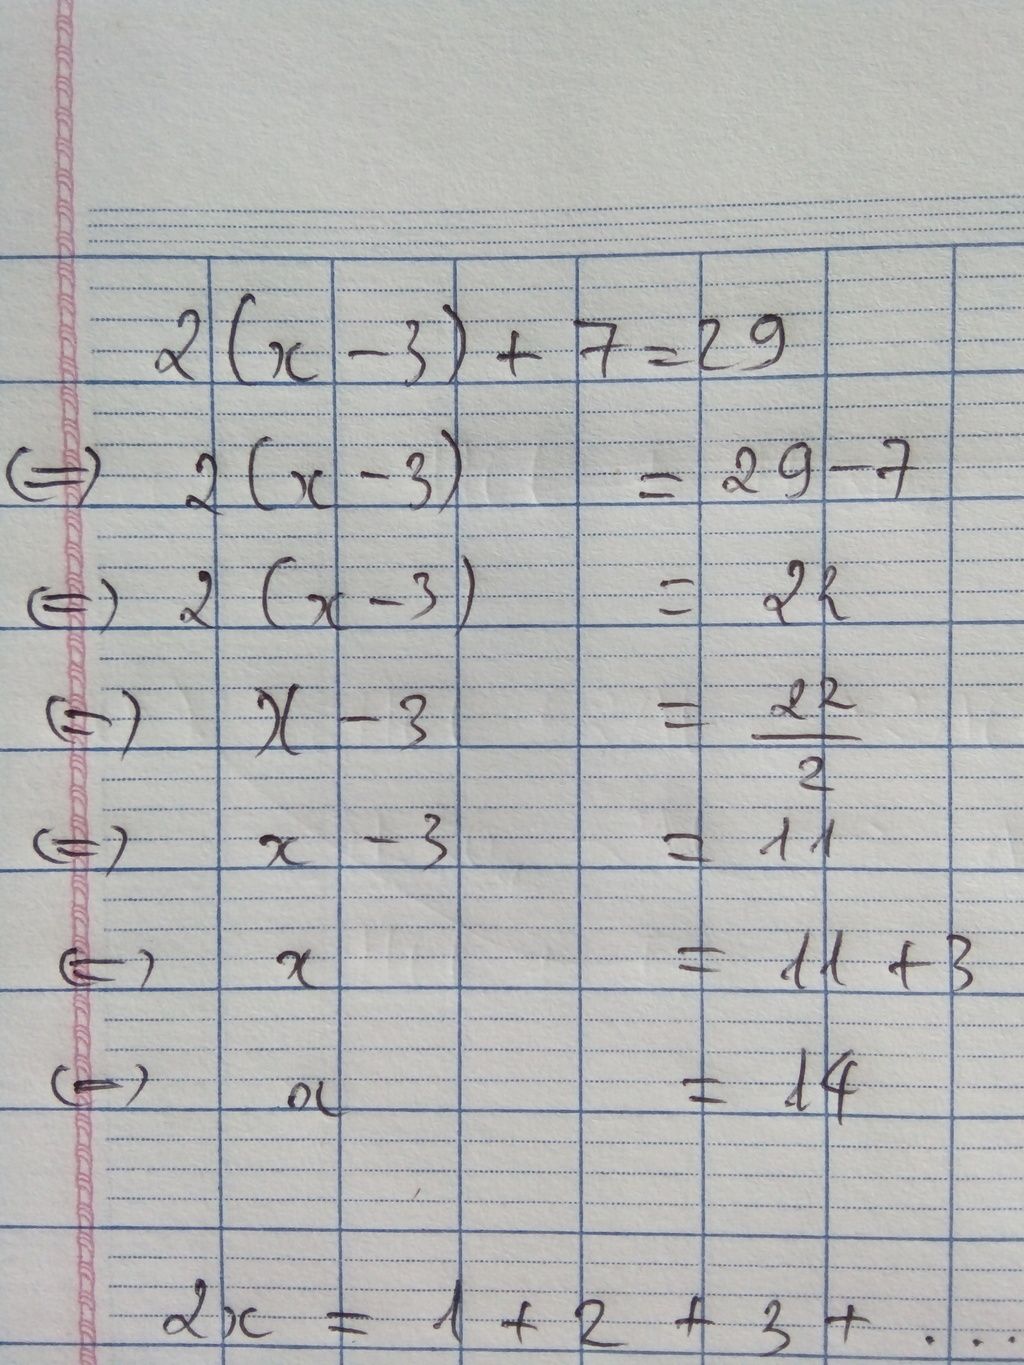 2(x - 3) + 7 = 29
(=) 2(x - 3) = 29 - 7
(=) 2 (x - 3) = 22
(=) x - 3 = 22/2
(=) x - 3 = 11
(=) x = 11 + 3
(=) x = 14
2x = 1 + 2 + 3 + ....